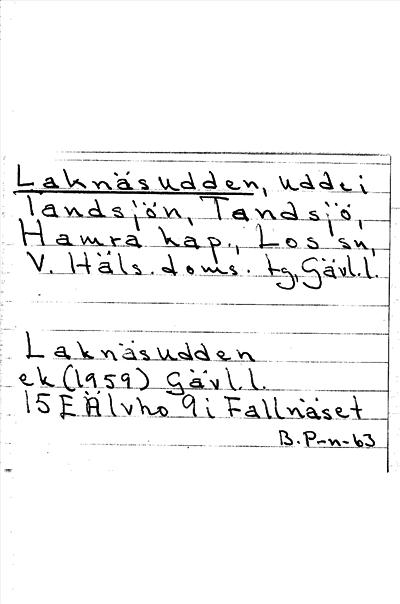 Laknäsudden, udde i
Tandsjön, Tandsjö,
Hamra kap., Los sn,
V. Häls. doms. tg, Gävl.l.
Laknäsudden
ek (1959) Gävl.l.
15E Älvho 9i Fallnäset
B. P-n-63